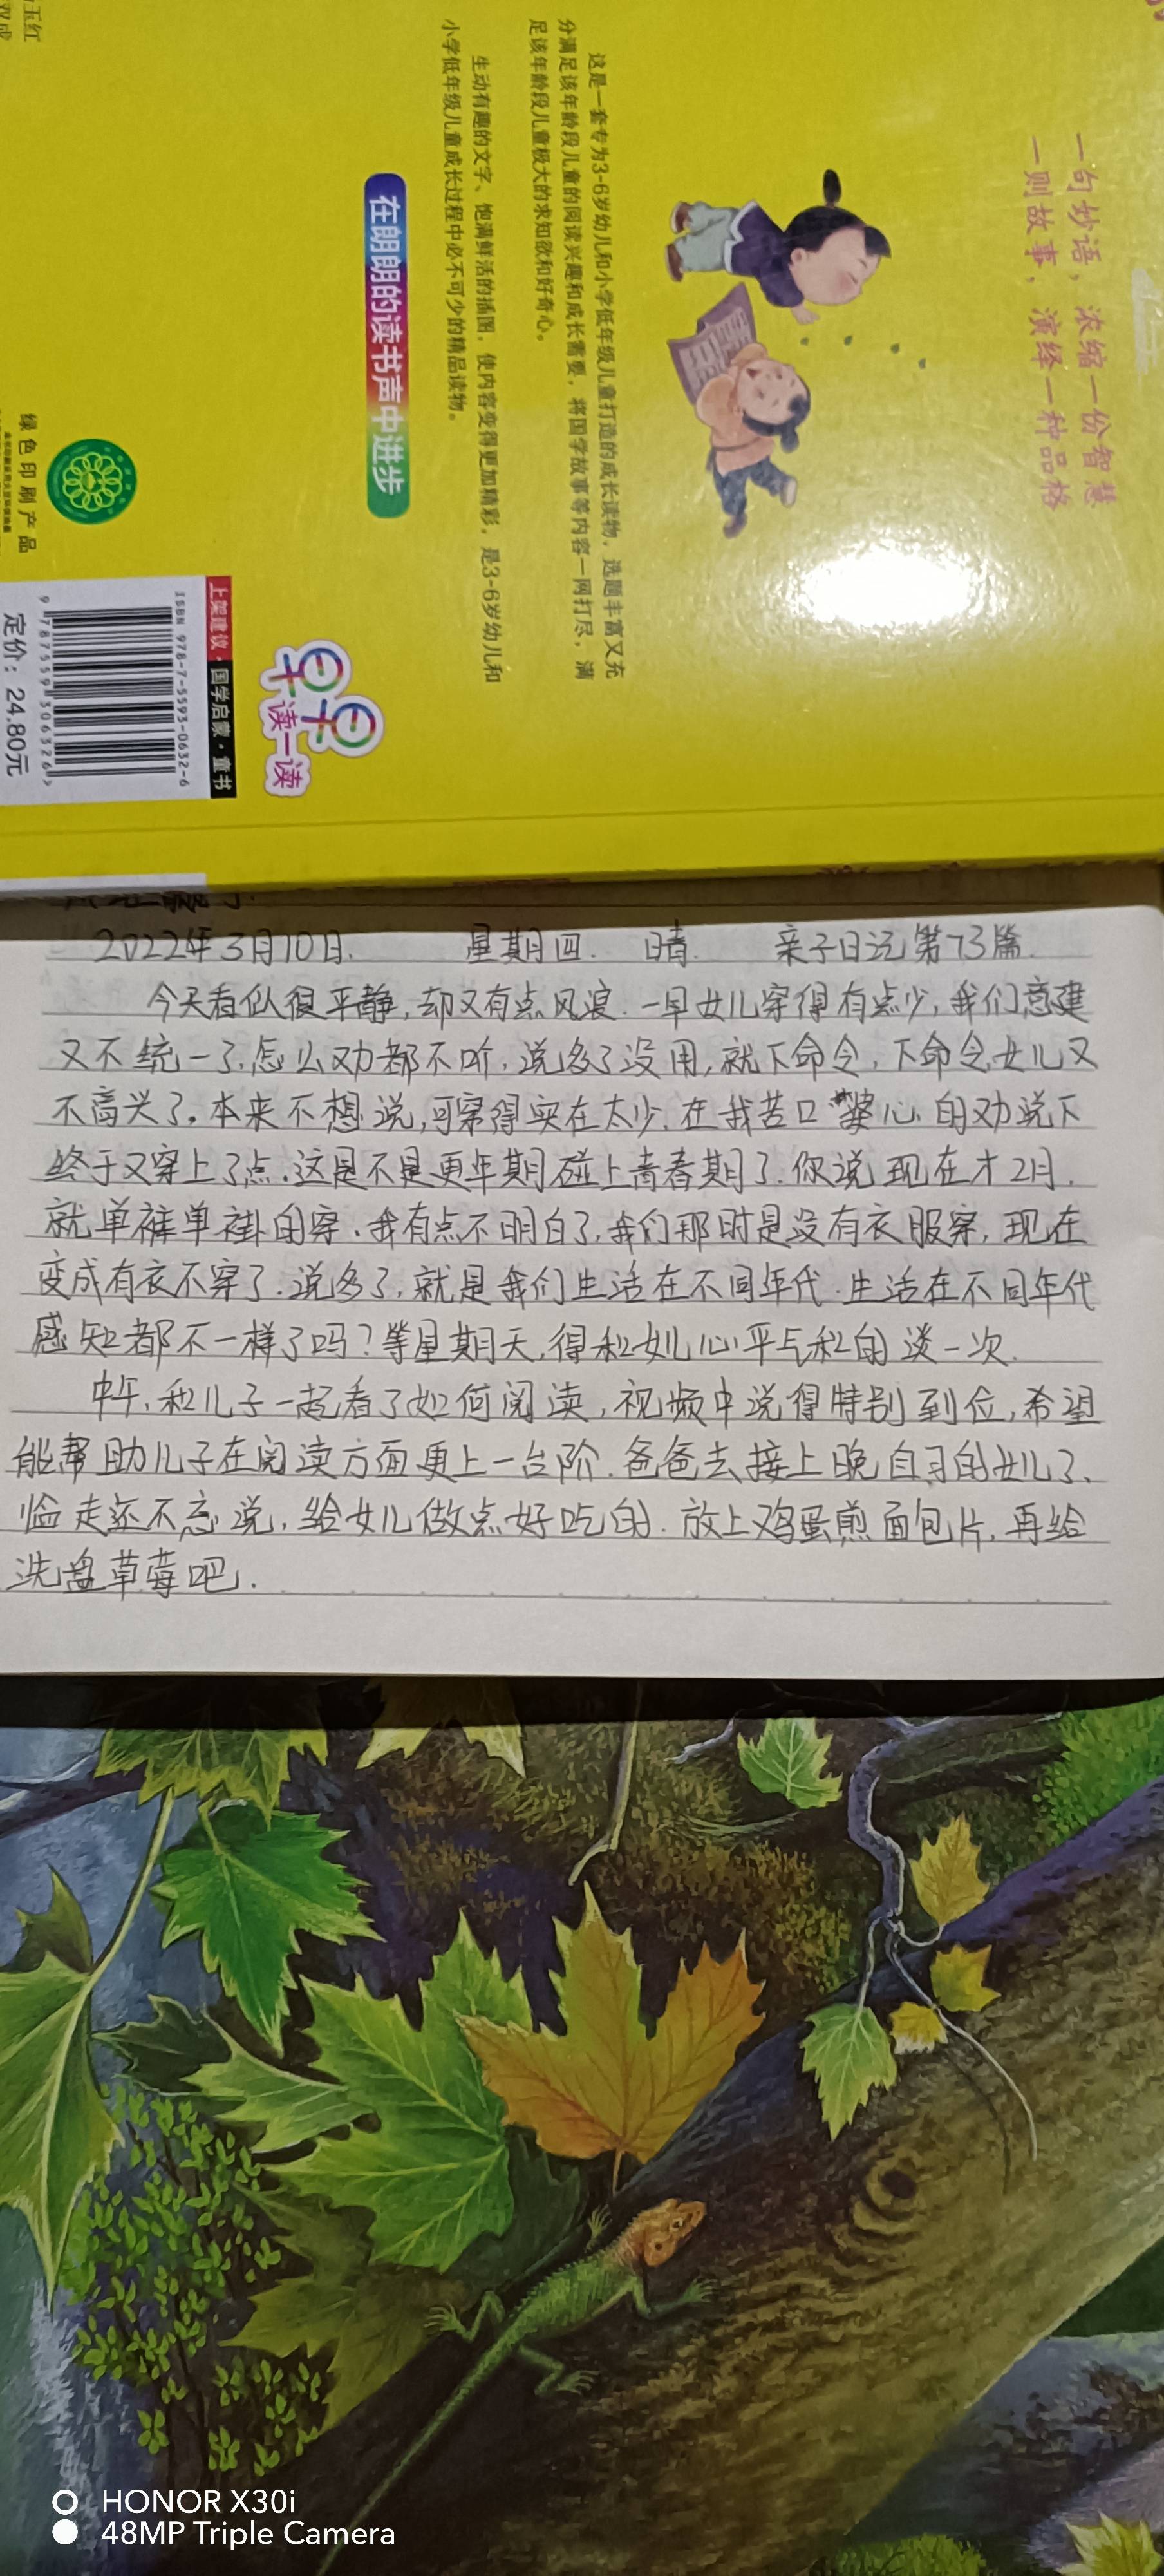 一句妙语，浓缩一份智慧
一则故事，演绎一种品格
这是一套专为3-6岁幼儿和小学低年级儿童打造的成长读物，选题丰富又充
分满足该年龄段儿童的阅读兴趣和成长需要，将国学故事等内容一网打尽，满
足该年龄段儿童极大的求知欲和好奇心。
生动有趣的文字、饱满鲜活的插图，使内容变得更加精彩，是3-6岁幼儿和
小学低年级儿童成长过程中必不可少的精品读物。
在朗朗的读书声中进步
早早读一读
上架建议·国学启蒙·童书
ISBN 978-7-5593-0632-6
9 787559 306326>
定价：24.80元
绿色印刷产品
玉红
2022年3月10日. 星期四. 晴. 亲子日记第73篇.
今天看似很平静,却又有点风浪.一早女儿穿得有点少,我们意建
又不统一了.怎么劝都不听,说多了没用,就下命令,下命令女儿又
不高兴了.本来不想说,可穿得实在太少.在我苦口婆心的劝说下
终于又穿上了点.这是不是更年期碰上青春期了.你说现在才2月.
就单裤单褂的穿.我有点不明白了,我们那时是没有衣服穿,现在
变成有衣不穿了.说多了,就是我们生活在不同年代.生活在不同年代
感知都不一样了吗?等星期天,得和女儿心平气和的谈一次.
中午,和儿子一起看了如何阅读,视频中说得特别到位,希望
能帮助儿子在阅读方面更上一台阶.爸爸去接上晚自习的女儿了、
临走还不忘说,给女儿做点好吃的.放上鸡蛋煎面包片,再给
洗盘草莓吧.
HONOR X30i
48MP Triple Camera